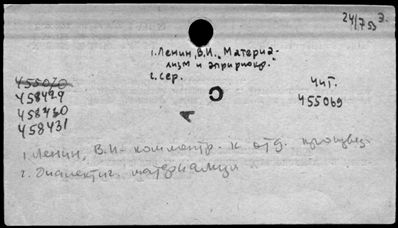 24/7 53 Э.
1. Ленин, В.И. „Материа-
лизм и эмпириокр."
2. сер.
455070
458429
458430
458431
чит.
455069
1. Ленин, В.И. - комментр. к отд. произвед.
2. Диалектич. материализм